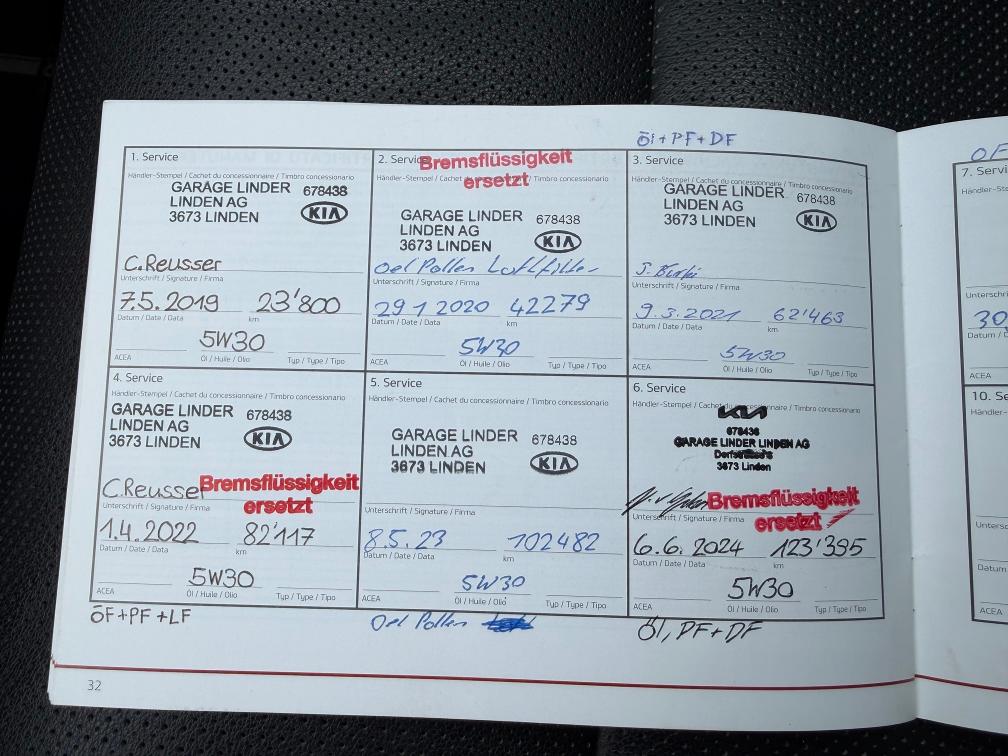 Öl + PF + DF
1. Service
Händler-Stempel / Cachet du concessionnaire / Timbro concessionario
GARAGE LINDER 678438
LINDEN AG KIA
3673 LINDEN
C.Reusser
Unterschrift / Signature / Firma
7.5.2019 23'800
Datum / Date / Data km
5W30
ACEA Öl / Huile / Olio Typ / Type / Tipo
2. Service
Bremsflüssigkeit
ersetzt
Händler-Stempel / Cachet du concessionnaire / Timbro concessionario
GARAGE LINDER 678438
LINDEN AG KIA
3673 LINDEN
Oel Pollen Luftfilter
Unterschrift / Signature / Firma
29 1 2020 42279
Datum / Date / Data km
5W30
ACEA Öl / Huile / Olio Typ / Type / Tipo
3. Service
Händler-Stempel / Cachet du concessionnaire / Timbro concessionario
GARAGE LINDER 678438
LINDEN AG KIA
3673 LINDEN
Unterschrift / Signature / Firma
9.3.2021 62'463
Datum / Date / Data km
5W30
ACEA Öl / Huile / Olio Typ / Type / Tipo
4. Service
Händler-Stempel / Cachet du concessionnaire / Timbro concessionario
GARAGE LINDER 678438
LINDEN AG KIA
3673 LINDEN
C.Reusser Bremsflüssigkeit
ersetzt
Unterschrift / Signature / Firma
1.4.2022 82'117
Datum / Date / Data km
5W30
ACEA Öl / Huile / Olio Typ / Type / Tipo
ÖF+PF+LF
5. Service
Händler-Stempel / Cachet du concessionnaire / Timbro concessionario
GARAGE LINDER 678438
LINDEN AG KIA
3673 LINDEN
Unterschrift / Signature / Firma
8.5.23 102482
Datum / Date / Data km
5W30
ACEA Öl / Huile / Olio Typ / Type / Tipo
Oel Pollen
6. Service
Händler-Stempel / Cachet du concessionnaire / Timbro concessionario
KIA
678438
GARAGE LINDER LINDEN AG
3673 Linden
Bremsflüssigkeit
ersetzt
Unterschrift / Signature / Firma
6.6.2024 123'395
Datum / Date / Data km
5W30
ACEA Öl / Huile / Olio Typ / Type / Tipo
Öl, PF+DF
32
7.
30
ACEA
10.
ACEA